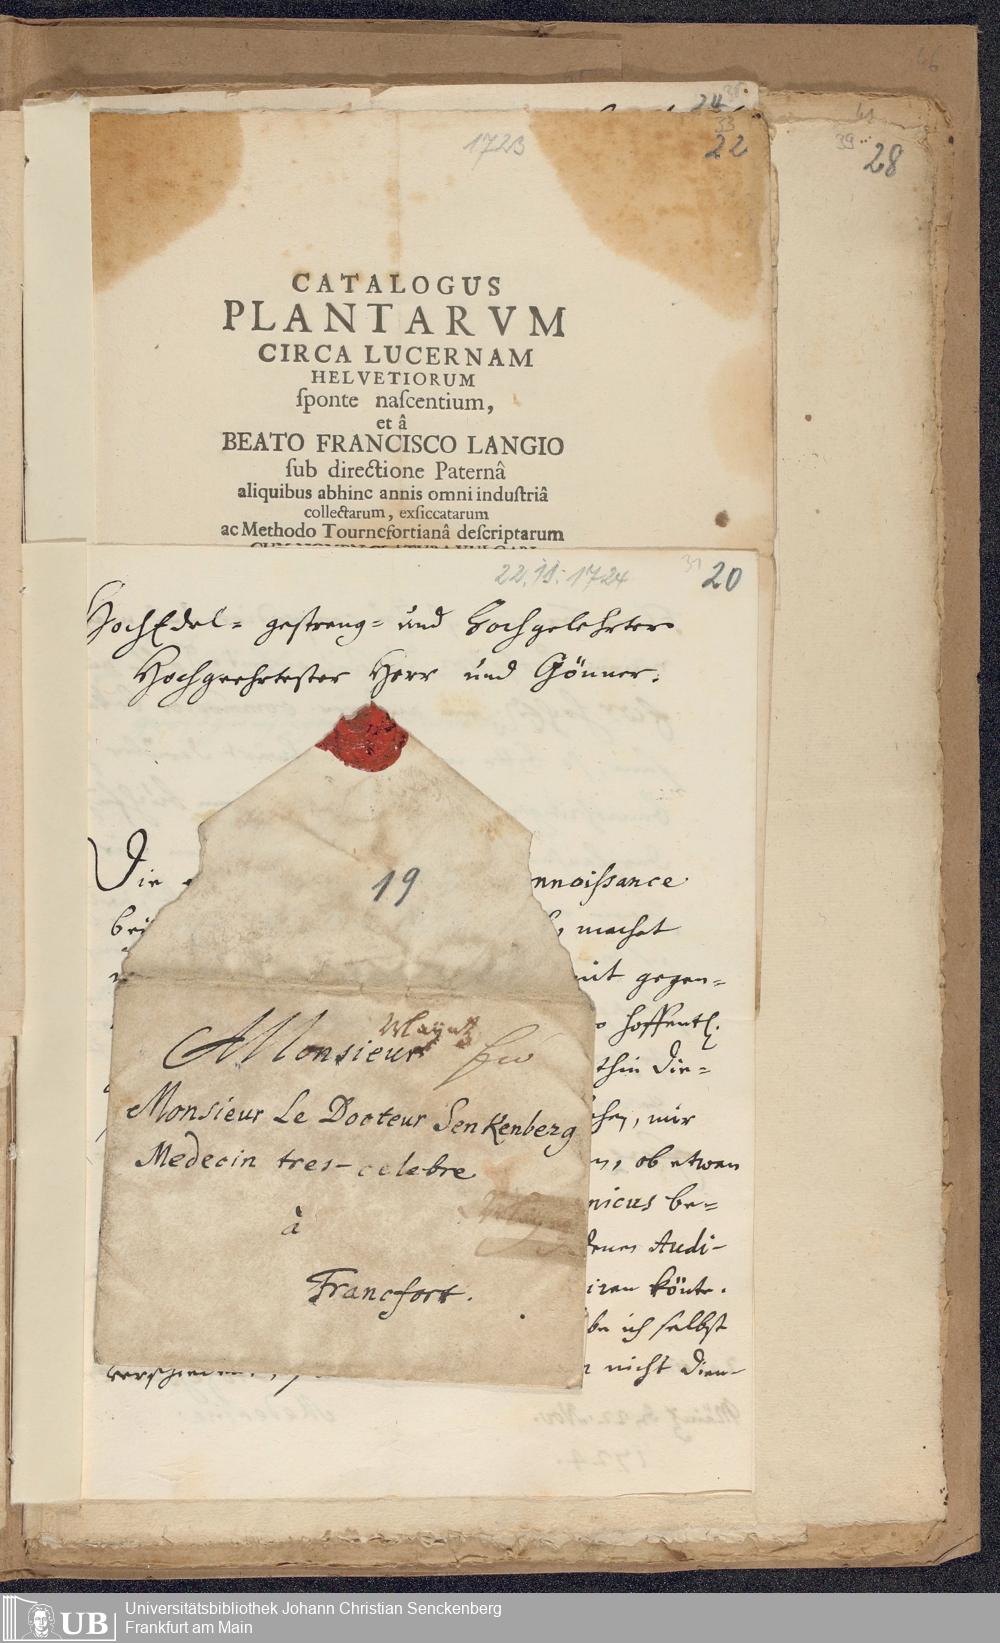 66
24
38
33
22
1723
61
39
28
CATALOGUS
PLANTARVM
CIRCA LUCERNAM
HELVETIORUM
ſponte naſcentium,
et â
BEATO FRANCISCO LANGIO
ſub directione Paternâ
aliquibus abhinc annis omni induſtriâ
collectarum, exſiccatarum
ac Methodo Tournefortianâ deſcriptarum
CUM NOMENCLATURA VULGARI
22. 11. 1724
31
20
HochEdel= gestreng= und Hochgelehrter
Hochgeehrtester Herr und Gönner.
Die
nnoiſsance
bei
machet
mit gegen=
hoffentl.
thin die=
mir
ob etwan
nicus be=
Audi-
iren könte.
ich selbst
nicht dien=
19
A Monsieur
Monsieur Le Docteur Senkenberg
Medecin tres-celebre
à
Francfort.
Universitätsbibliothek Johann Christian Senckenberg
Frankfurt am Main
UB